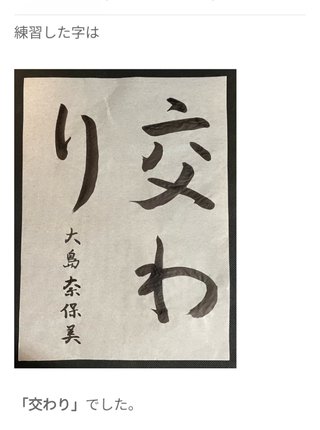 練習した字は
交わ
り
大島奈保美
「交わり」でした。